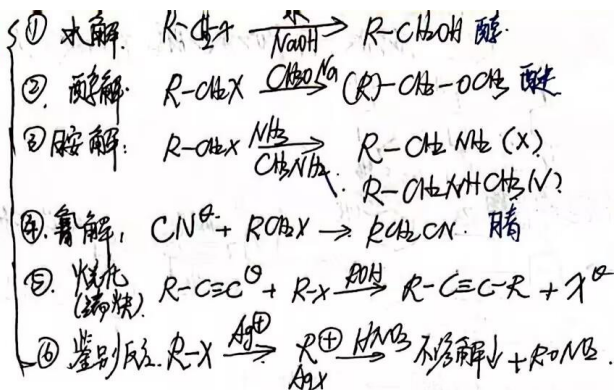 ① 水解. R-CH₂X —水/NaOH→ R-CH₂OH 醇.
②. 醇解. R-CH₂X —CH₃ONa→ (R)-CH₂-OCH₃ 醚
③ 胺解: R-CH₂X —NH₃/CH₃NH₂→ R-CH₂NH₂ (X)
R-CH₂NHCH₃(√)
④. 氰解, CN⊖ + RCH₂X → RCH₂CN. 腈
⑤. 炔化 R-C≡C⊖ + R-X —ROH→ R-C≡C-R + X⊖
(端炔).
⑥ 鉴别反应. R-X —Ag⊕→ R⊕ —HNO₃→ 不溶解↓ + RONO₂.
AgX